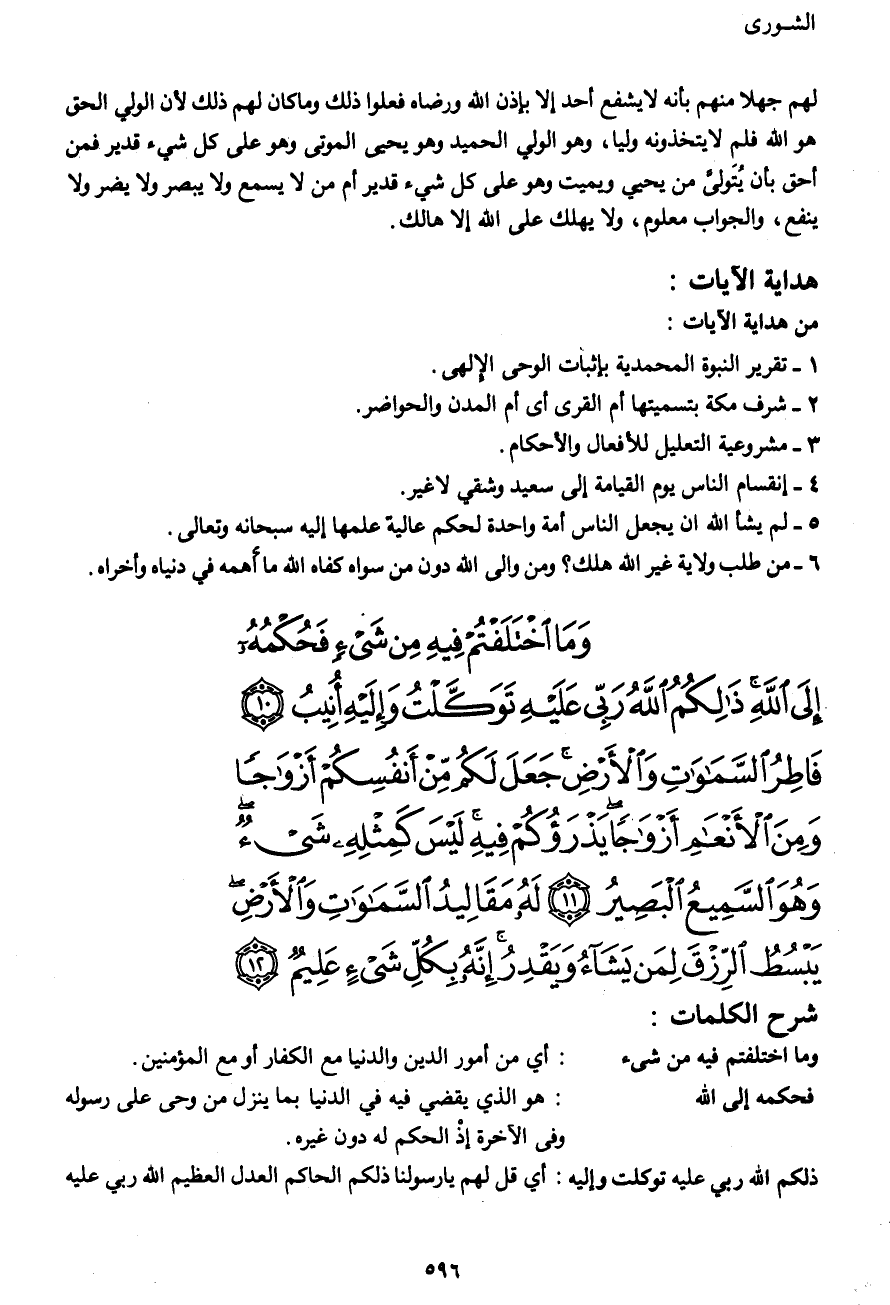 الشـورى
لهم جهلا منهم بأنه لايشفع أحد إلا بإذن الله ورضاه فعلوا ذلك وماكان لهم ذلك لأن الولي الحق
هو الله فلم لايتخذونه وليا، وهو الولي الحميد وهو يحيى الموتى وهو على كل شيء قدير فمن
أحق بأن يُتَولىَّ من يحيي ويميت وهو على كل شيء قدير أم من لا يسمع ولا يبصر ولا يضر ولا
ينفع، والجواب معلوم، ولا يهلك على الله إلا هالك.
هداية الآيات :
من هداية الآيات :
١ ـ تقرير النبوة المحمدية بإثبات الوحى الإلهى.
٢ ـ شرف مكة بتسميتها أم القرى أى أم المدن والحواضر.
٣ ـ مشروعية التعليل للأفعال والأحكام.
٤ ـ إنقسام الناس يوم القيامة إلى سعيد وشقي لاغير.
٥ ـ لم يشأ الله ان يجعل الناس أمة واحدة لحكم عالية علمها إليه سبحانه وتعالى.
٦ ـ من طلب ولاية غير الله هلك؟ ومن والى الله دون من سواه كفاه الله ما أهمه في دنياه وأخراه.
وَمَا ٱخْتَلَفْتُمْ فِيهِ مِن شَىْءٍ فَحُكْمُهُۥٓ
إِلَى ٱللَّهِ ۚ ذَٰلِكُمُ ٱللَّهُ رَبِّى عَلَيْهِ تَوَكَّلْتُ وَإِلَيْهِ أُنِيبُ ١٠
فَاطِرُ ٱلسَّمَٰوَٰتِ وَٱلْأَرْضِ ۚ جَعَلَ لَكُم مِّنْ أَنفُسِكُمْ أَزْوَٰجًا
وَمِنَ ٱلْأَنْعَٰمِ أَزْوَٰجًا ۖ يَذْرَؤُكُمْ فِيهِ ۚ لَيْسَ كَمِثْلِهِۦ شَىْءٌ ۖ
وَهُوَ ٱلسَّمِيعُ ٱلْبَصِيرُ ١١ لَهُۥ مَقَالِيدُ ٱلسَّمَٰوَٰتِ وَٱلْأَرْضِ ۖ
يَبْسُطُ ٱلرِّزْقَ لِمَن يَشَآءُ وَيَقْدِرُ ۚ إِنَّهُۥ بِكُلِّ شَىْءٍ عَلِيمٌ ١٢
شرح الكلمات :
وما اختلفتم فيه من شىء : أي من أمور الدين والدنيا مع الكفار أو مع المؤمنين.
فحكمه إلى الله : هو الذي يقضي فيه في الدنيا بما ينزل من وحى على رسوله
وفى الآخرة إذْ الحكم له دون غيره.
ذلكم الله ربي عليه توكلت وإليه : أي قل لهم يارسولنا ذلكم الحاكم العدل العظيم الله ربي عليه
٥٩٦